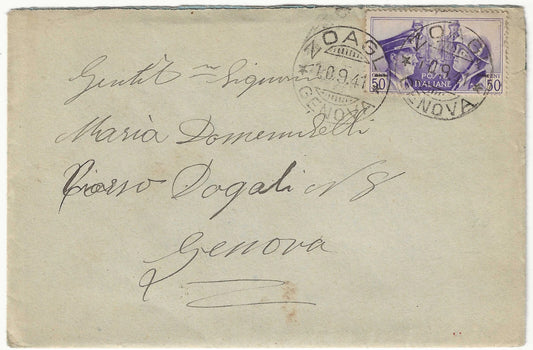 ZOAGLI
10.9.41
GENOVA
ZOAGLI
GENOVA
50
POSTE
ITALIANE
CENT
50
Gentil ma Signora
Maria
Corso Dogali N 8
Genova